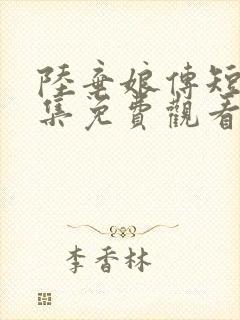 陸棄娘傳短
集免費觀看
李香林